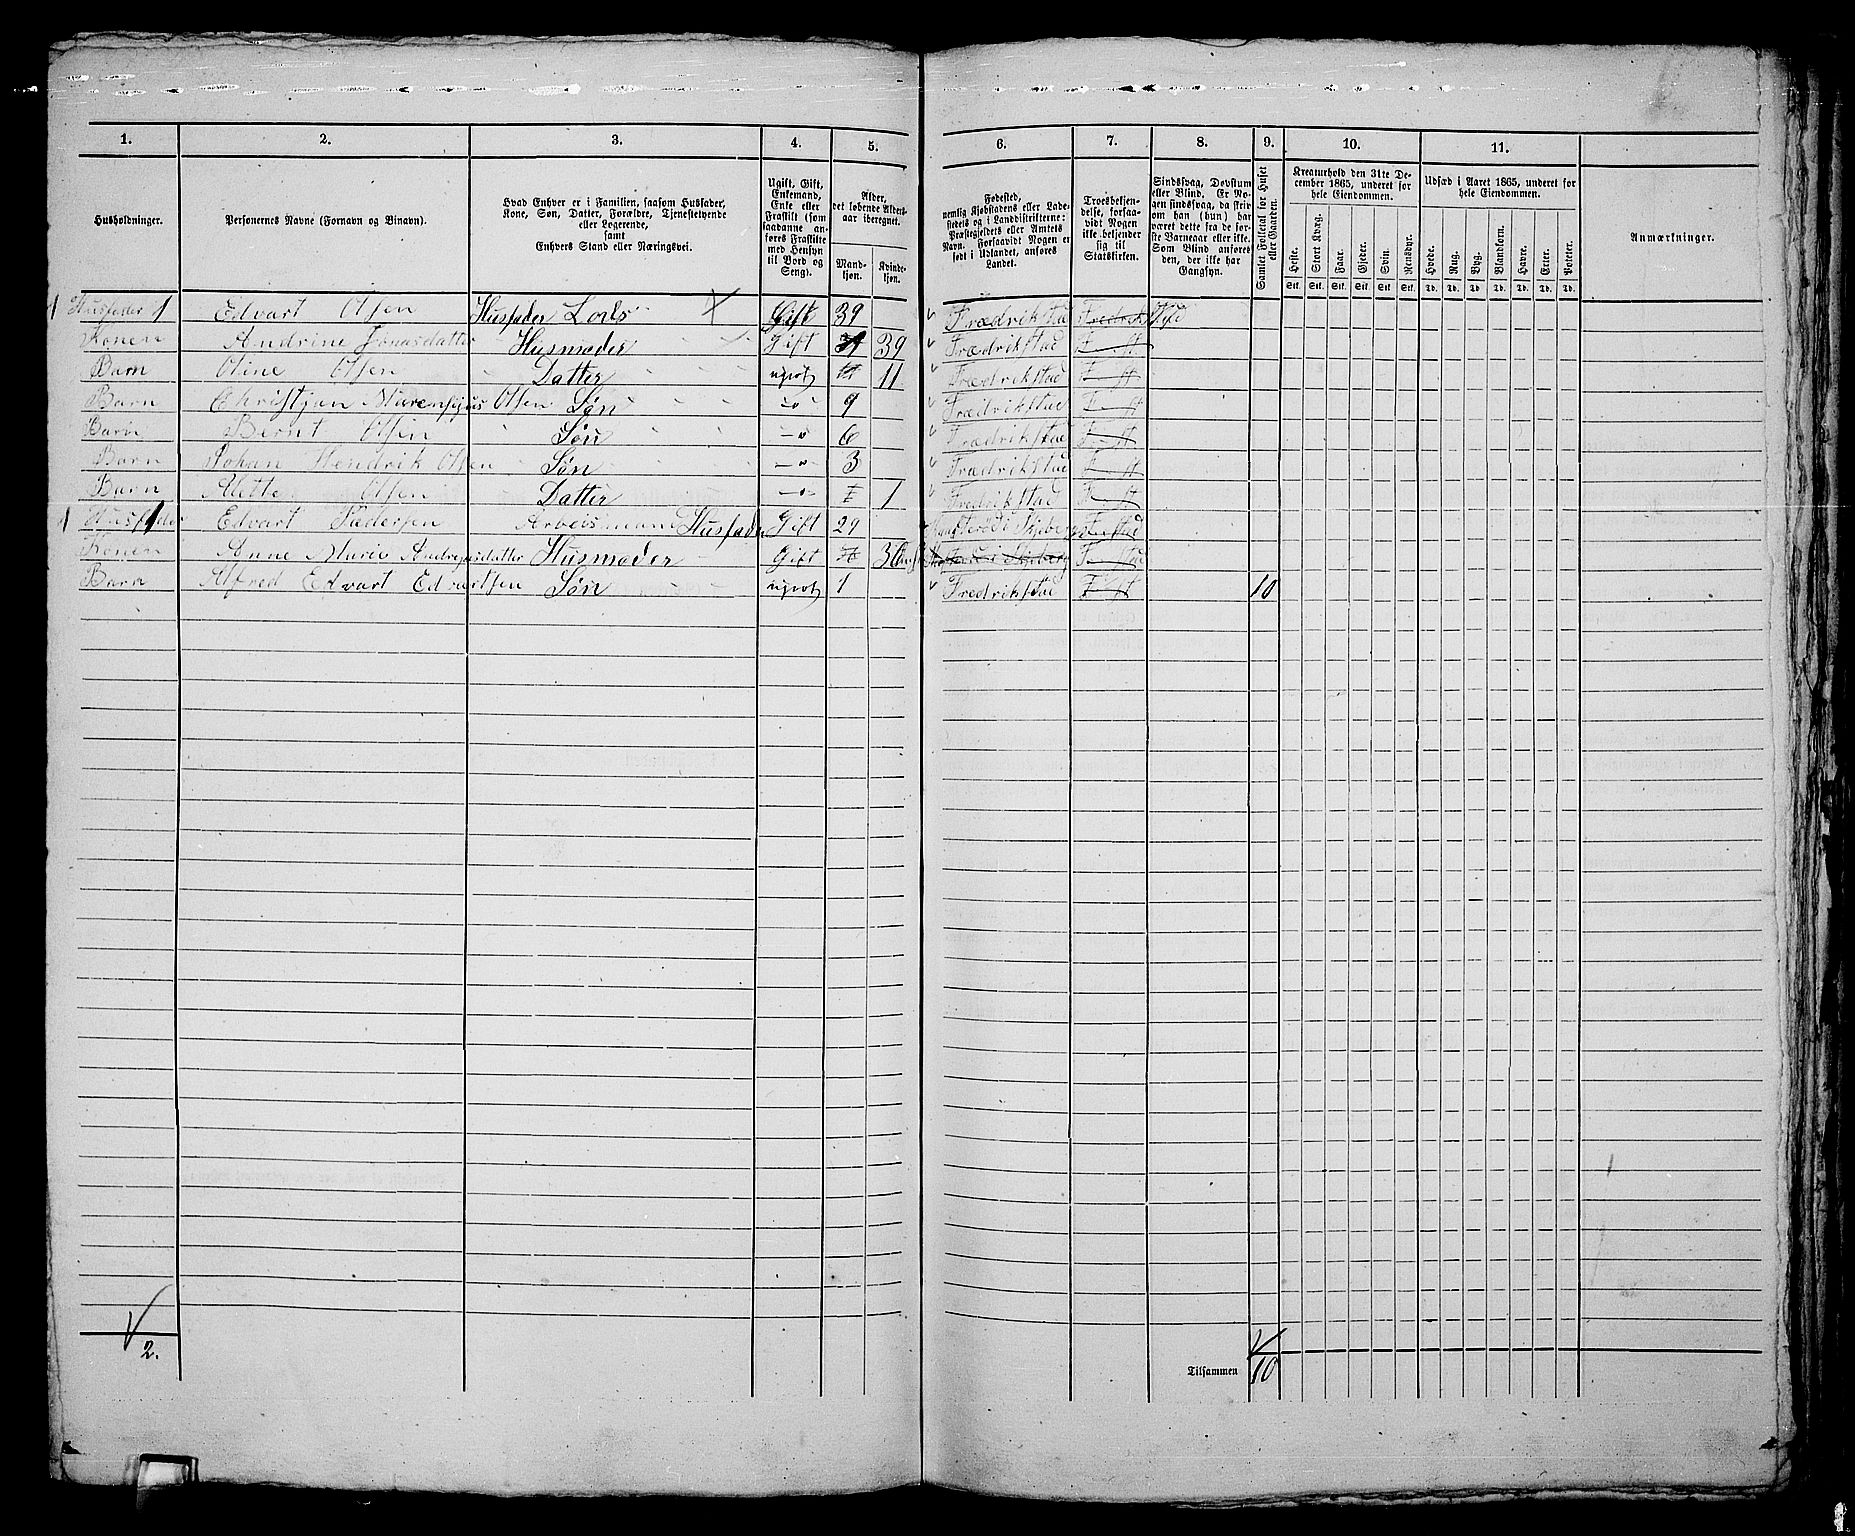 1. 2. 3. 4. 5. 6. 7. 8. 9. 10. 11.
Husholdninger.
Personernes Navne (Fornavn og Binavn).
Hvad Enhver er i Familien, saasom Husfader,
Kone, Søn, Datter, Forældre, Tjenestetyende
eller Logerende,
samt
Enhvers Stand eller Næringsvei.
Ugift, Gift,
Enkemand,
Enke eller
Fraskilt (som
saadanne an-
føres Fraskilte
med Hensyn
til Bord og
Seng).
Alder,
det løbende Alders-
aar iberegnet.
Mand-
kjøn.
Kvinde-
kjøn.
Fødested,
nemlig Kjøbstadens eller Lade-
stedets og i Landdistrikterne:
Præstegjeldets eller Amtets
Navn. Forsaavidt Nogen er
født i Udlandet, anføres
Landet.
Troesbekjen-
delse, forsaa-
vidt Nogen
ikke bekjender
sig til
Statskirken.
Sindssvag, Døvstum
eller Blind. Er No-
gen sindssvag, da skriv
om han (hun) har
været dette fra de før-
ste Barneaar eller ikke.
Som Blind anføres
den, der ikke har
Gangsyn.
Samlet Folketal for Huset
eller Gaarden.
Kreaturhold den 31te De-
cember 1865, underet for
hele Eiendommen.
Heste. Stort Kvæg. Faar. Gjeder. Svin. Rensdyr.
Stk. Stk. Stk. Stk. Stk. Stk.
Udsæd i Aaret 1865, underet for
hele Eiendommen.
Hvede. Rug. Byg. Blandkorn. Havre. Erter. Poteter.
Td. Td. Td. Td. Td. Td. Td.
Anmærkninger.
1 Husfader 1 Edvart Olsen Husfader Lods Gift 39 Frædrikstad Fredrikstad
Konen Andrine Jonasdatter Husmoder Gift 39 Frædrikstad F. st
Barn Oline Olsen Datter ugivt 11 Frædrikstad F. st
Barn Christjan Olsen Søn -"- 9 Frædrikstad F. st
Barn Bernt Olsen Søn -"- 6 Frædrikstad F. st
Barn Johan Hendrik Olsen Søn -"- 3 Frædrikstad F. st
Barn Alette Olsen Datter -"- 1 Fredrikstad F. st
1 Husfader Edvart Pædersen Arbeismann Husfader Gift 29
Konen Anne Marie Andreasdatter Husmoder Gift 36
Barn Alfred Edvart Edvartsen Søn ugivt 1 Fredrikstad F. st 10
2.
Tilsammen 10